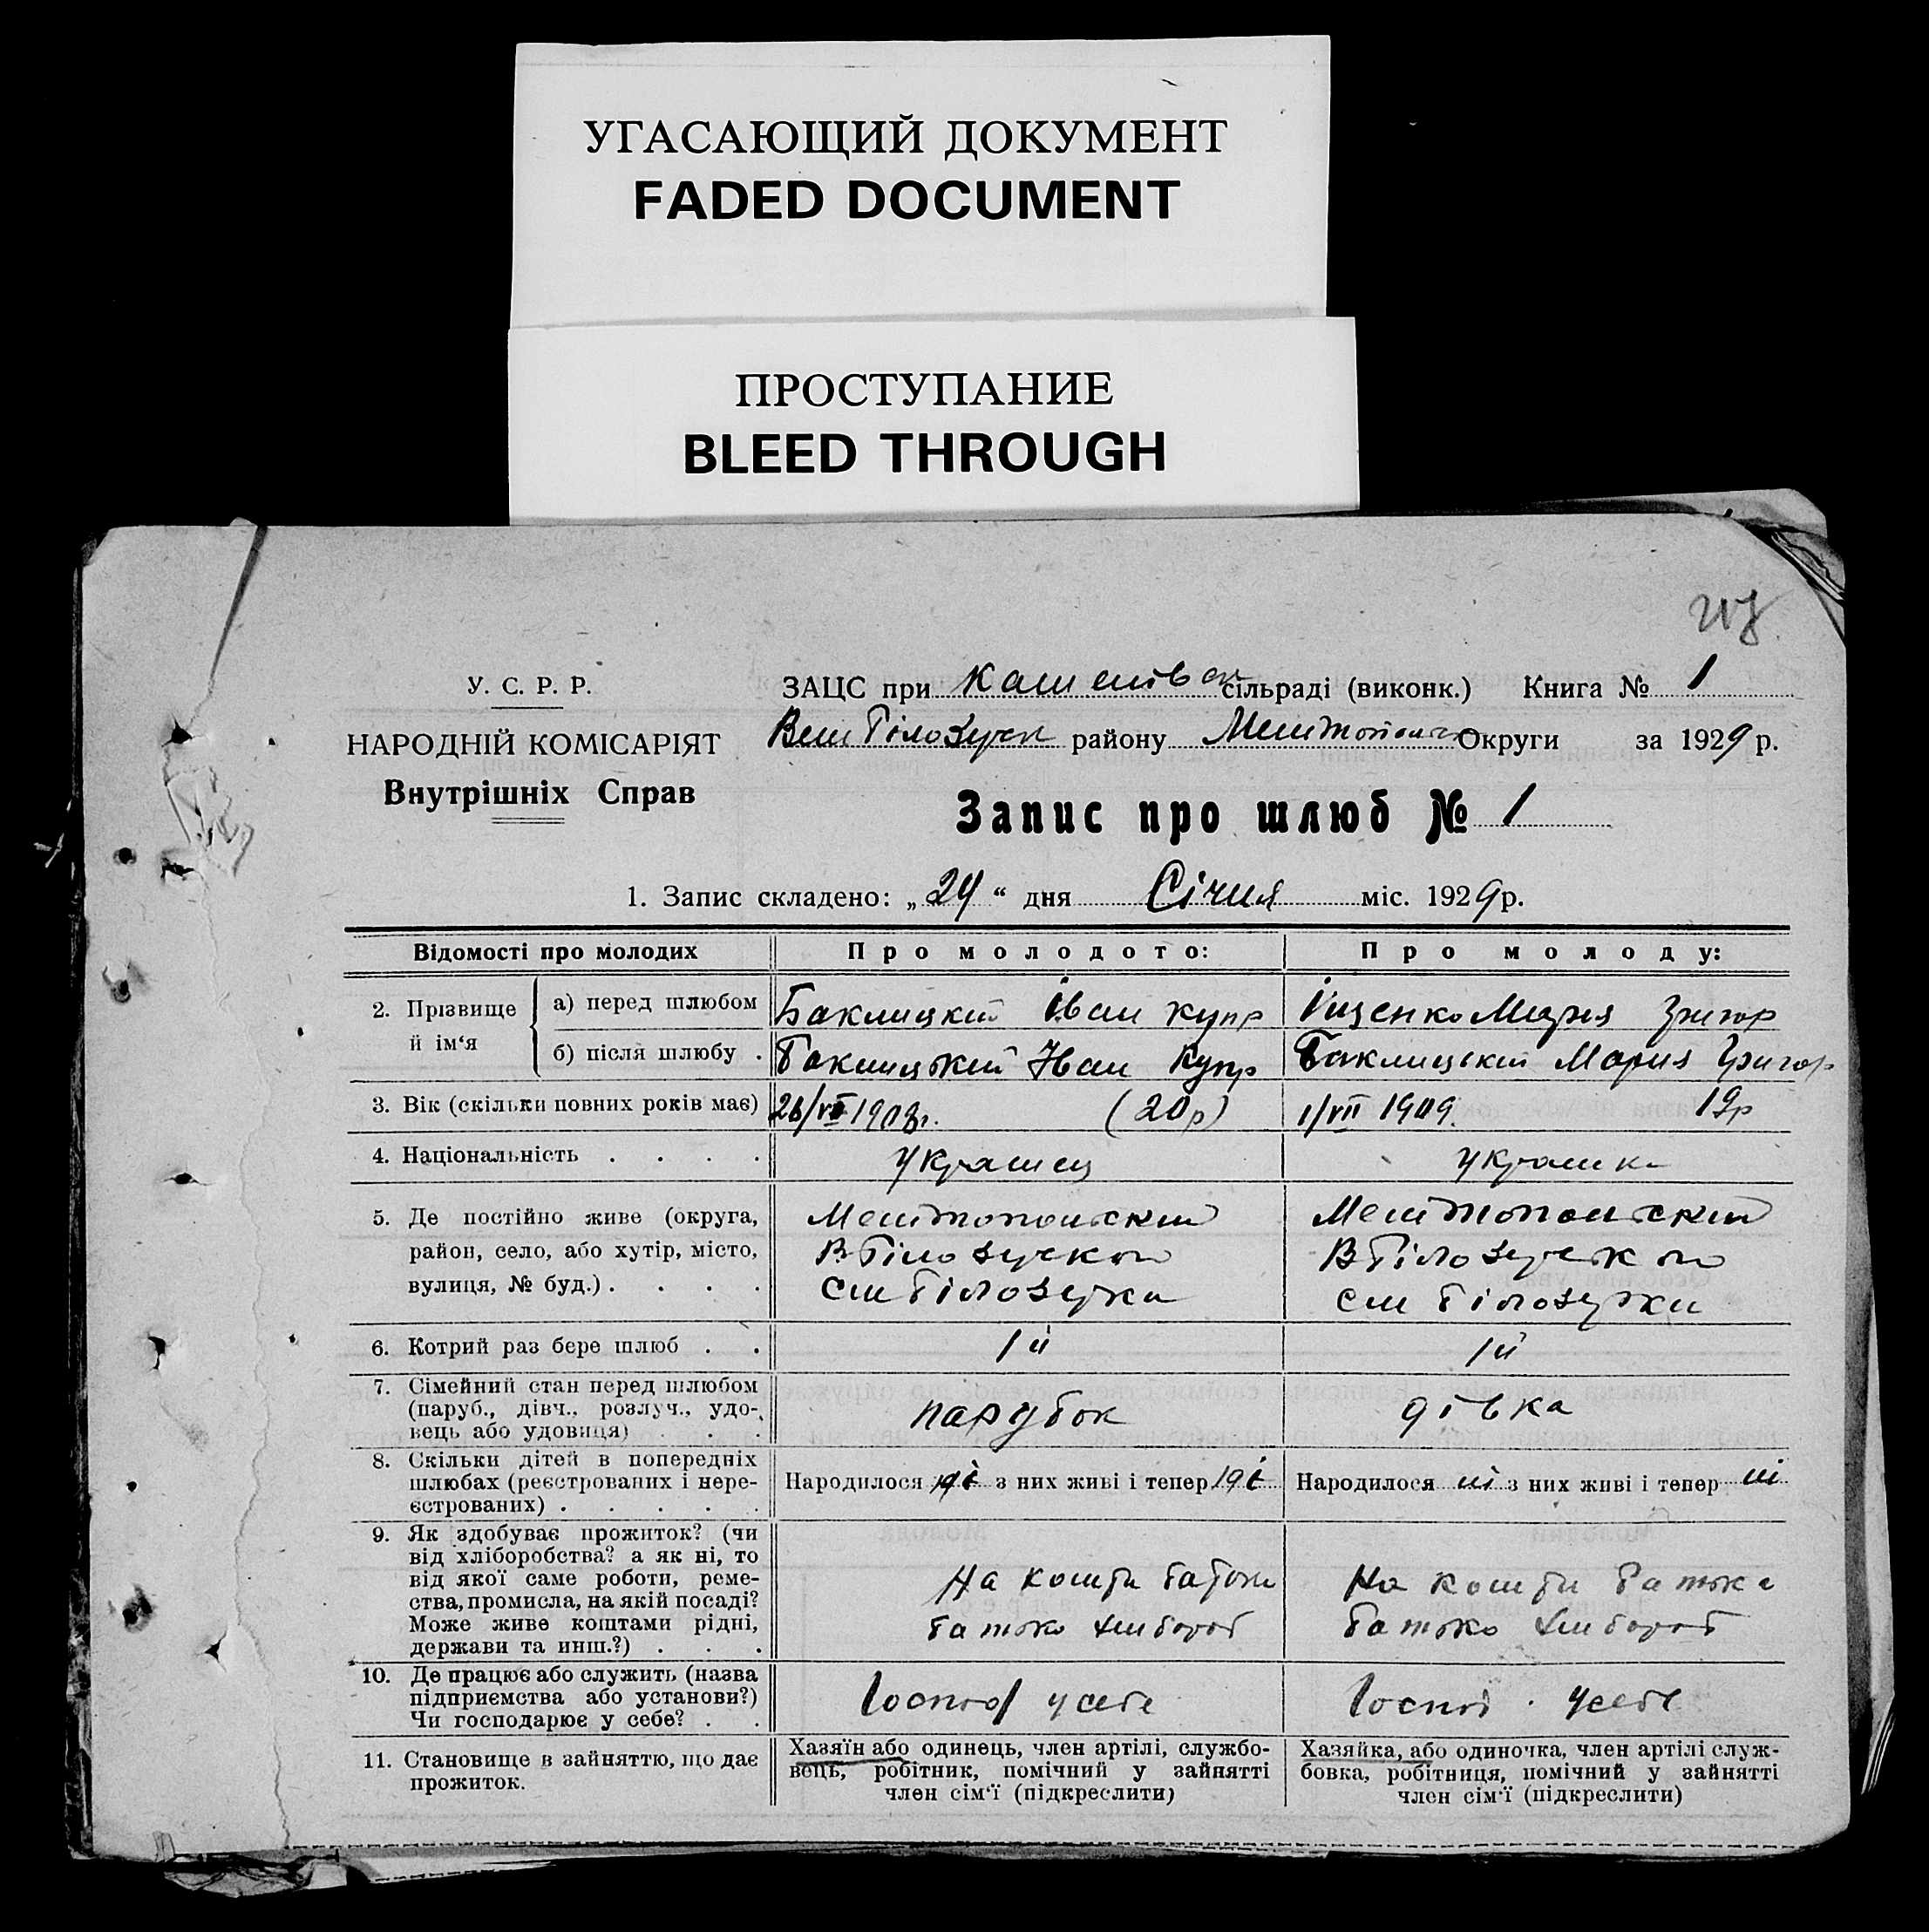 УГАСАЮЩИЙ ДОКУМЕНТ
FADED DOCUMENT
ПРОСТУПАНИЕ
BLEED THROUGH
У. С. Р. Р.
НАРОДНІЙ КОМІСАРІЯТ
Внутрішніх Справ
ЗАЦС при сільраді (виконк.) Книга № 1
району Округи за 1929 р.
Запис про шлюб № 1
1. Запис складено: „24“ дня Січня міс. 1929 р.
Відомості про молодих
Про молодого:
Про молоду:
2. Прізвище й ім‘я
а) перед шлюбом
Баклицкий Іван Купр
Іщенко Мария Григор
б) після шлюбу .
Баклицький Іван Купр
Баклицький Мария Григор
3. Вік (скільки повних років має)
(20р)
1/VII 1909. 19р
4. Національність . . . .
Украинец
Украинка
5. Де постійно живе (округа,
район, село, або хутір, місто,
вулиця, № буд.) . . . .
6. Котрий раз бере шлюб . .
1й
1й
7. Сімейний стан перед шлюбом
(паруб., дівч., розлуч., удо-
вець або удовиця) . . .
парубок
дівка
8. Скільки дітей в попередніх
шлюбах (реєстрованих і нере-
єстрованих) . . . . .
Народилося з них живі і тепер
Народилося ні з них живі і тепер ні
9. Як здобуває прожиток? (чи
від хліборобства? а як ні, то
від якої саме роботи, реме-
ства, промисла, на якій посаді?
Може живе коштами рідні,
держави та инш.?) . . .
На кошти батька
батько хлибороб
На кошти батька
батько хлибороб
10. Де працює або служить (назва
підприємства або установи?)
Чи господарює у себе? . .
Господ у себе
Господ. у себе
11. Становище в зайняттю, що дає
прожиток.
Хазяїн або одинець, член артілі, службо-
вець, робітник, помічний у зайнятті
член сім‘ї (підкреслити)
Хазяйка, або одиночка, член артілі служ-
бовка, робітниця, помічний у зайнятті
член сім‘ї (підкреслити)